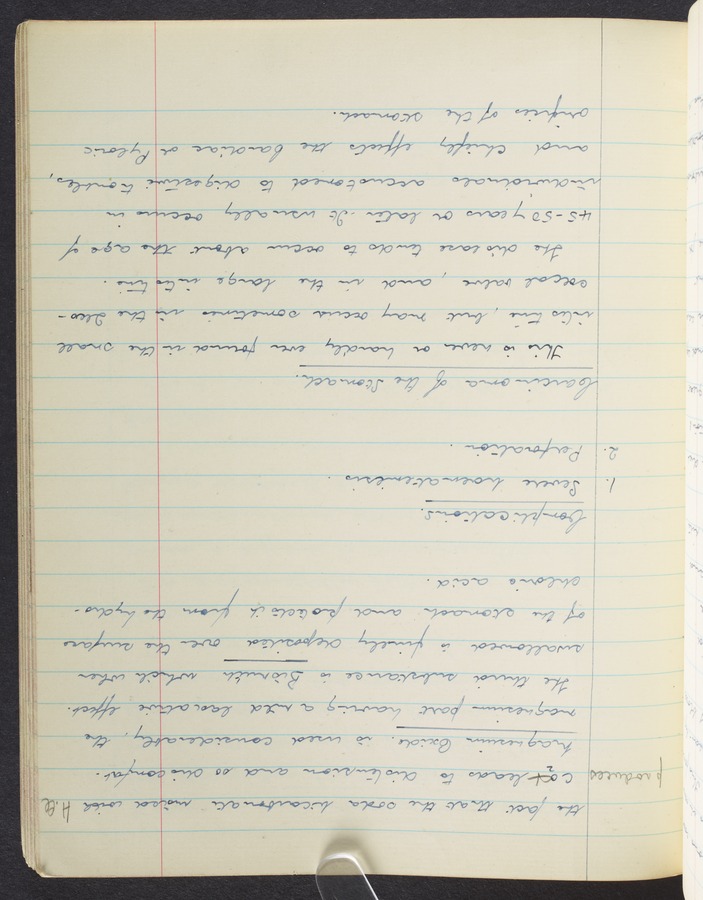 the fact that the soda bicarbonate mixed with H.Cl
produces CO2 leads to distension and so discomfort.
Magnesium Oxide. is used considerably, the
magnesium part having a mild laxative effect.
The third substance is Bismuth which when
swallowed is finely deposited over the surface
of the stomach and protects it from the hydro-
chloric acid.
Complications.
1. Severe haematemesis.
2. Perforation.
Carcinoma of the Stomach.
This is never or hardly ever found in the small
intestine, but may occur sometimes in the Ileo-
coecal valve, and in the large intestine.
The disease tends to occur about the age of
45-50 years or later. It usually occurs in
individuals accustomed to digestive troubles,
and chiefly effects the Cardiac or Pyloric
orifices of the stomach.